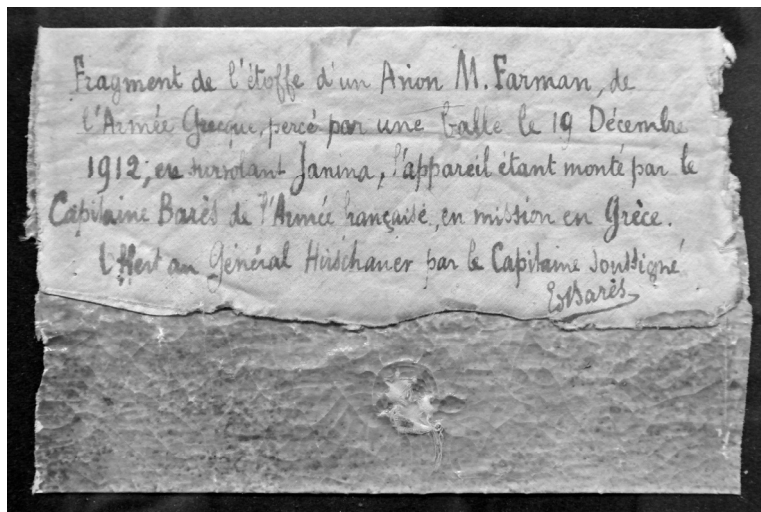 Fragment de l'étoffe d'un Avion M. Farman, de
l'Armée Grecque, percé par une balle le 19 Décembre
1912, en survolant Janina, l'appareil étant monté par le
Capitaine Barès de l'Armée française, en mission en Grèce.
Offert au Général Hirschauer par le Capitaine soussigné
EdBarès